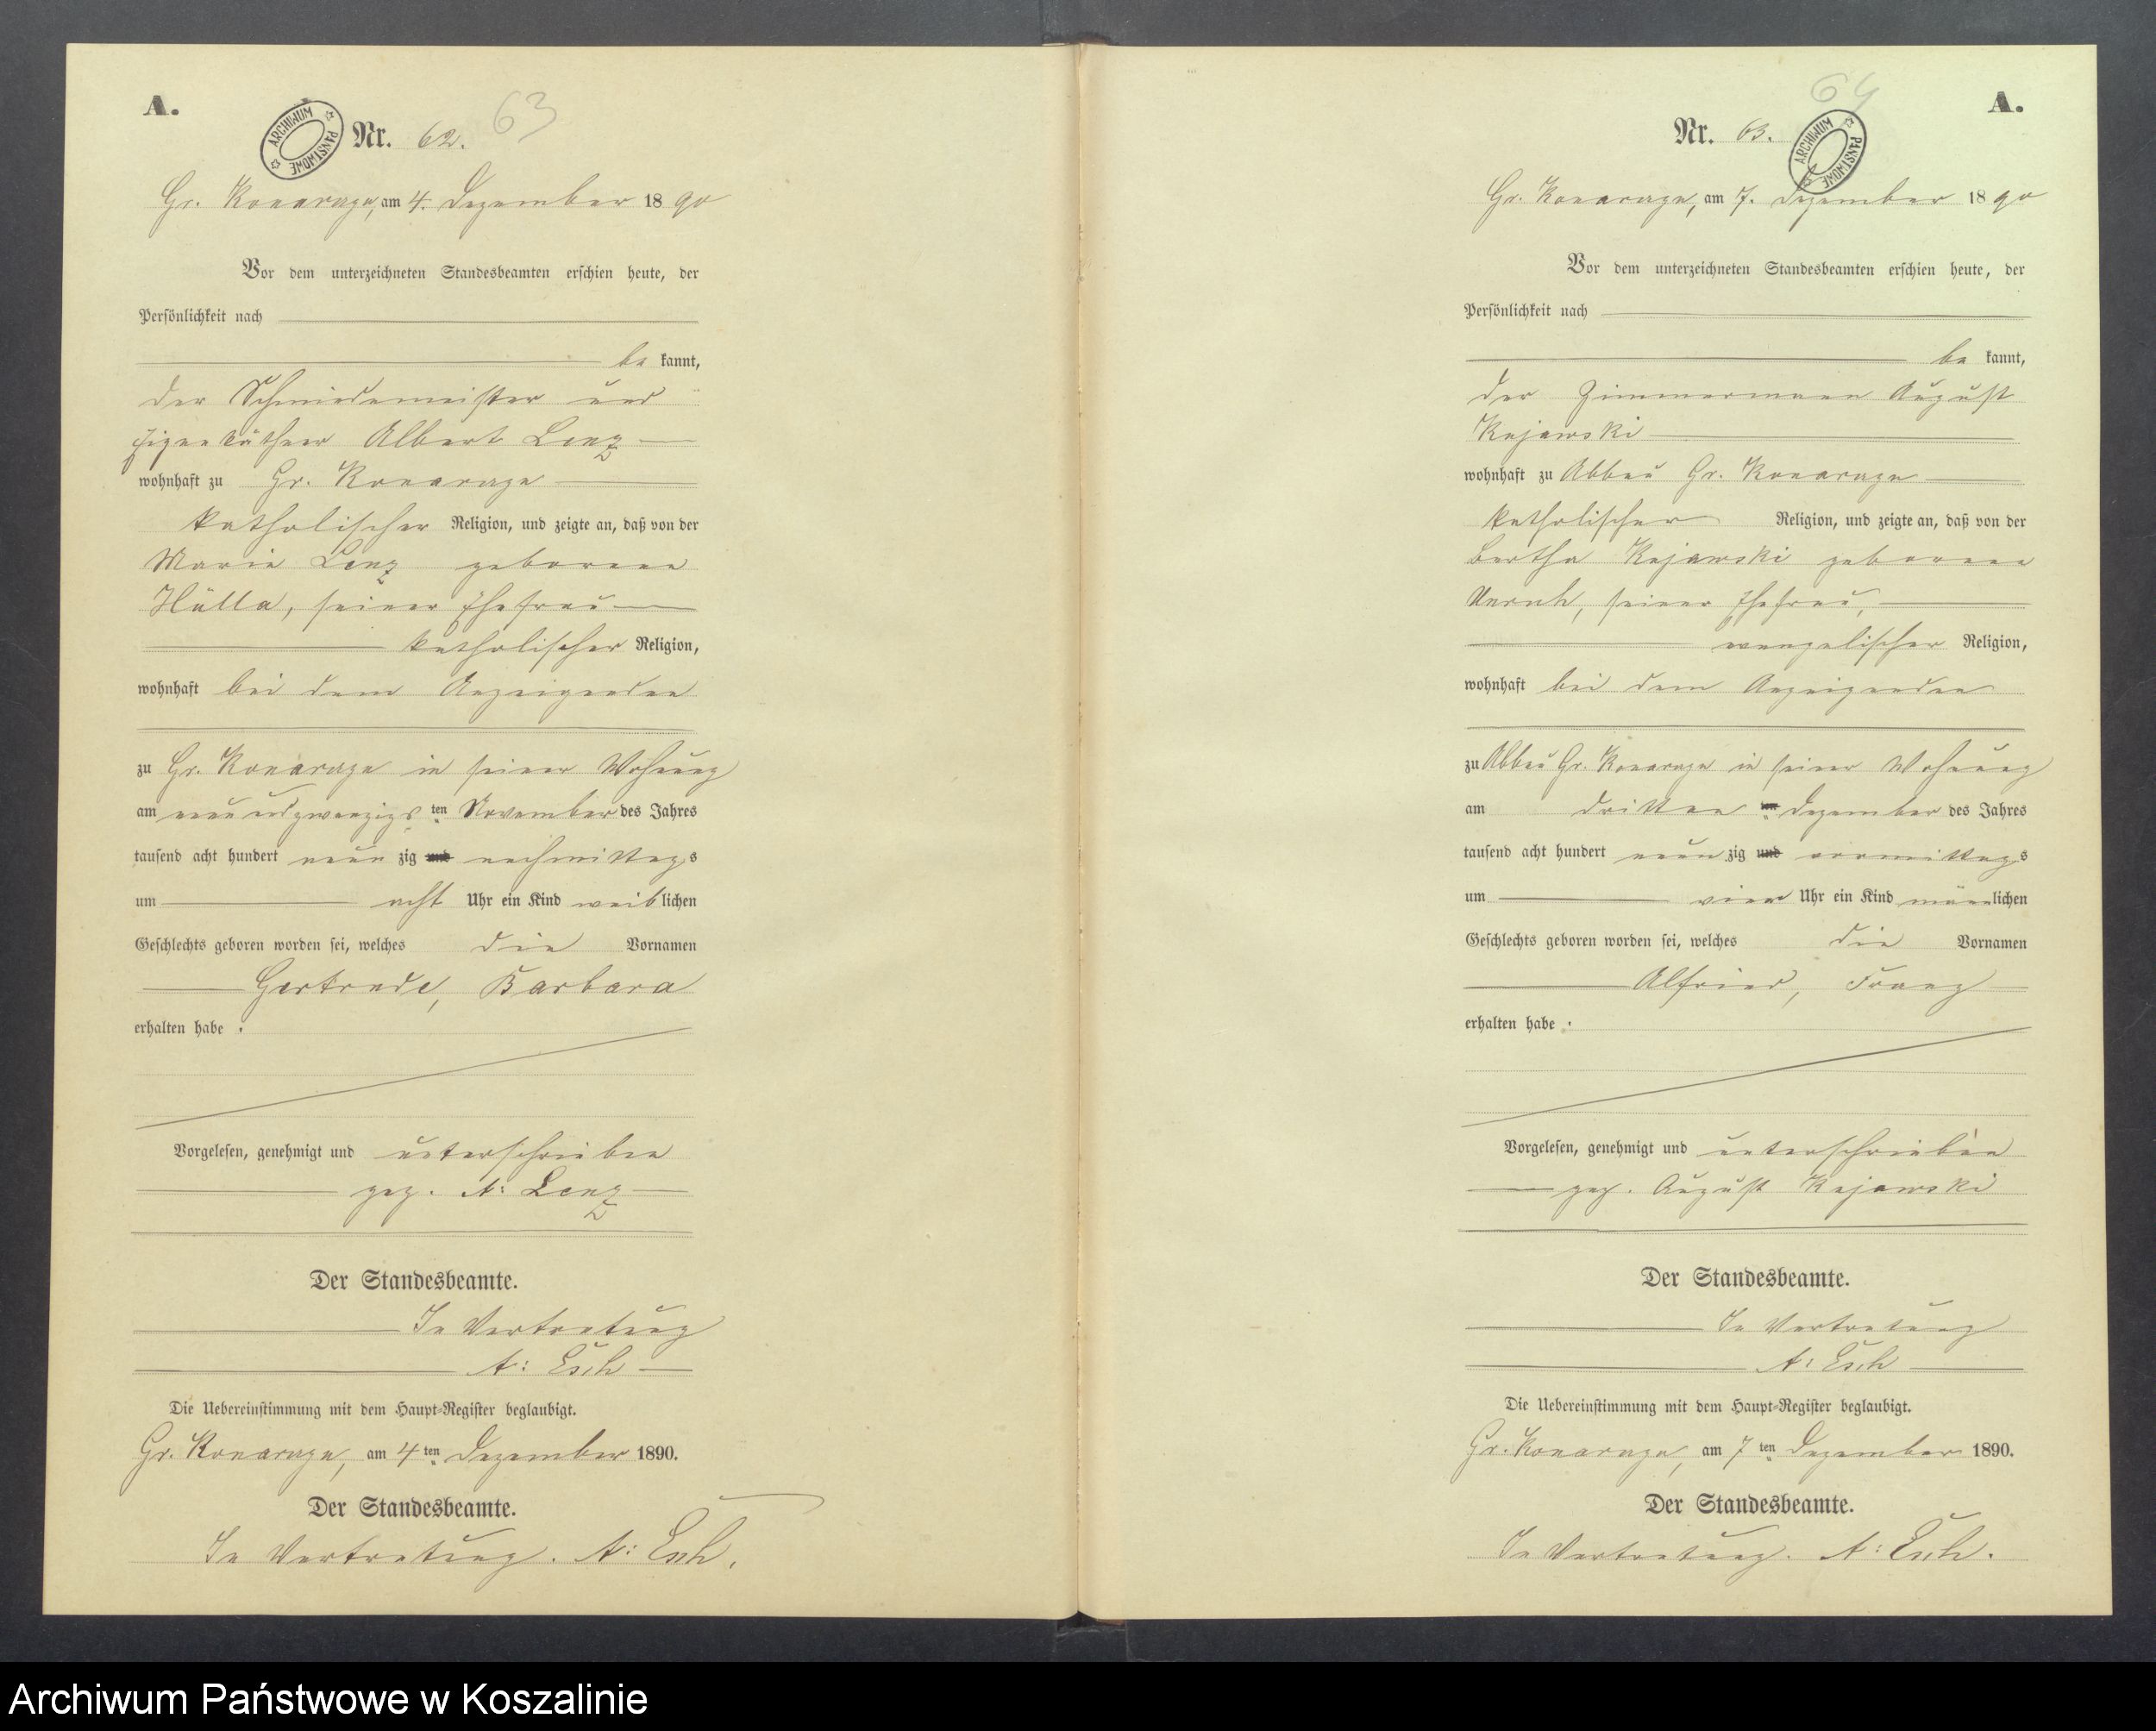 A.
ARCHIWUM PAŃSTWOWE
Nr. 62. 63
Gr. Konarczyn, am 4. Dezember 1890
Vor dem unterzeichneten Standesbeamten erschien heute, der
Persönlichkeit nach
bekannt,
der Schmiedemeister und
Eigenkäthner Albert Lenz
wohnhaft zu Gr. Konarczyn
katholischer Religion, und zeigte an, daß von der
Maria Lenz geborenen
Hülla, seiner Ehefrau
katholischer Religion,
wohnhaft bei dem Anzeigenden
zu Gr. Konarczyn in seiner Wohnung
am neunundzwanzigsten November des Jahres
tausend acht hundert neunzig und nachmittags
um acht Uhr ein Kind weiblichen
Geschlechts geboren worden sei, welches die Vornamen
Gertrude, Barbara
erhalten habe.
Vorgelesen, genehmigt und unterschrieben
gez. A: Lenz
Der Standesbeamte.
In Vertretung
A: Esch
Die Uebereinstimmung mit dem Haupt-Register beglaubigt.
Gr. Konarczyn, am 4ten Dezember 1890.
Der Standesbeamte.
In Vertretung. A: Esch.
64 A.
Nr. 63.
ARCHIWUM PAŃSTWOWE
Gr. Konarczyn, am 7. Dezember 1890
Vor dem unterzeichneten Standesbeamten erschien heute, der
Persönlichkeit nach
bekannt,
der Zimmermann August
Kujawski
wohnhaft zu Abbau Gr. Konarczyn
katholischer Religion, und zeigte an, daß von der
Bertha Kujawski geborenen
Unruh, seiner Ehefrau,
evangelischer Religion,
wohnhaft bei dem Anzeigenden
zu Abbau Gr. Konarczyn in seiner Wohnung
am dritten ten Dezember des Jahres
tausend acht hundert neunzig und vormittags
um vier Uhr ein Kind männlichen
Geschlechts geboren worden sei, welches die Vornamen
Alfried, Franz
erhalten habe.
Vorgelesen, genehmigt und unterschrieben
gez. August Kujawski
Der Standesbeamte.
In Vertretung
A: Esch
Die Uebereinstimmung mit dem Haupt-Register beglaubigt.
Gr. Konarczyn, am 7ten Dezember 1890.
Der Standesbeamte.
In Vertretung. A: Esch.
Archiwum Państwowe w Koszalinie